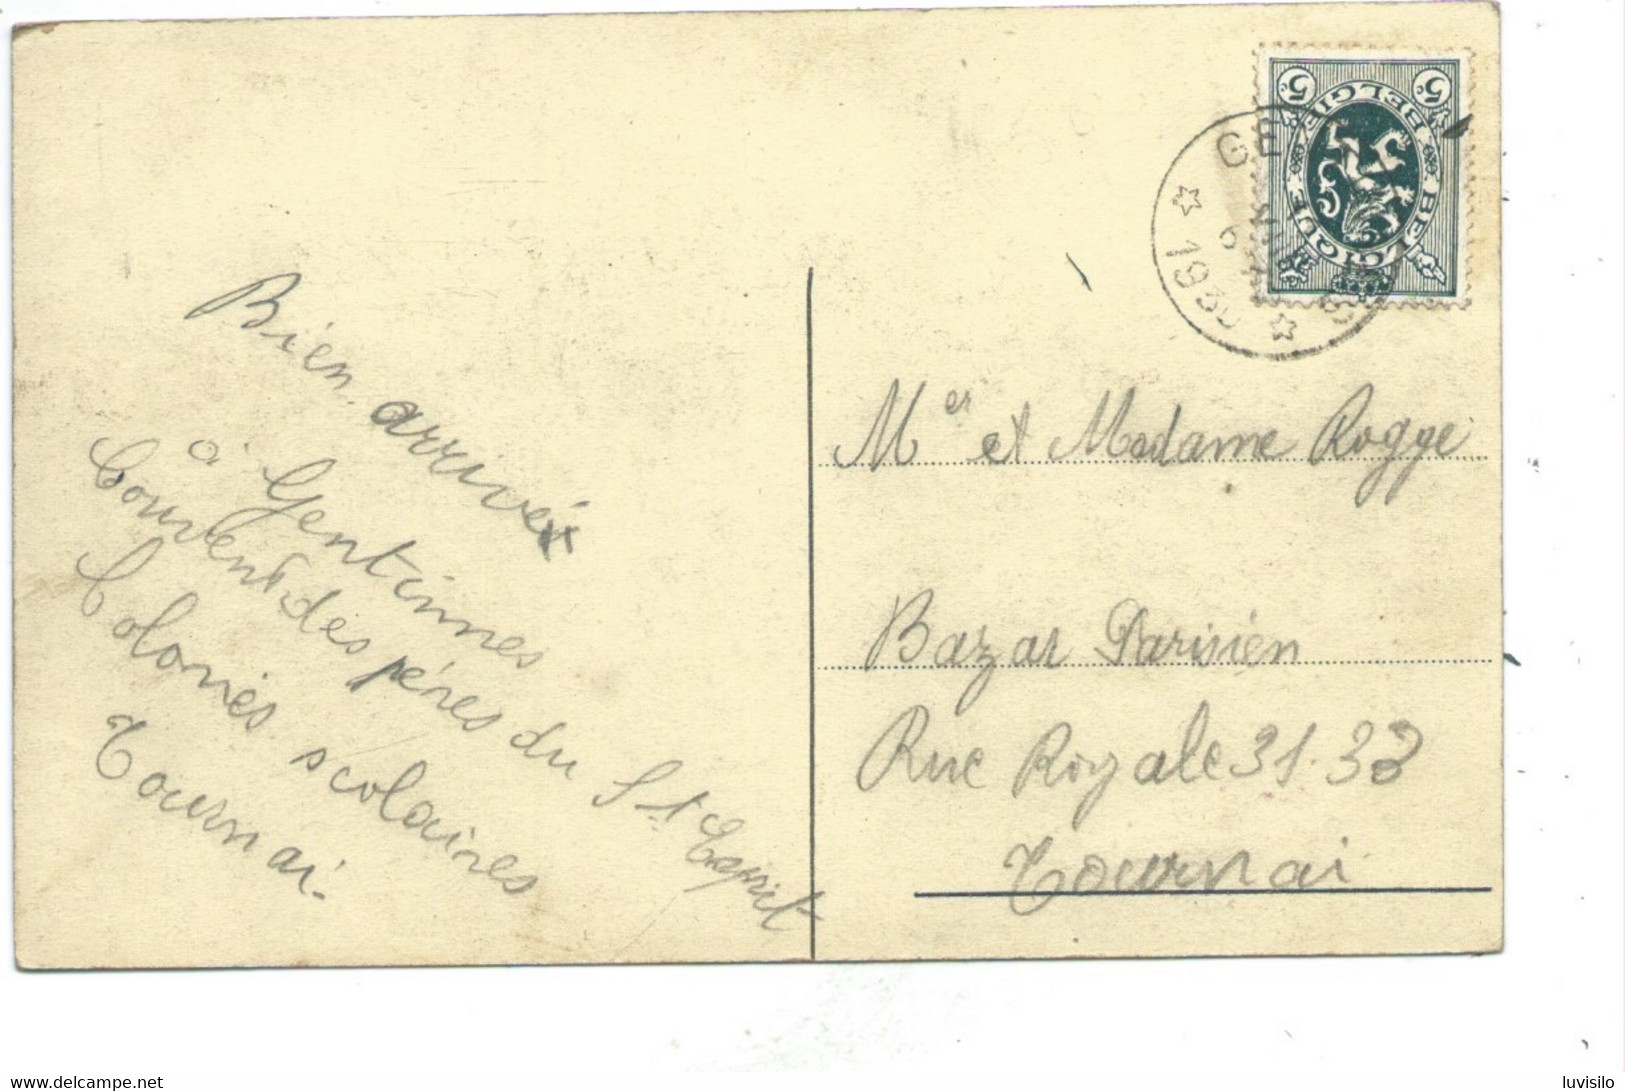 Bien arrivé
à Gentinnes
Couvent des pères du St Esprit
Colonies scolaires
Tournai.
5c 5c
BELGIE BELGIQUE
1930
Mer et Madame Rogge
Bazar Parisien
Rue Royale 31.33
Tournai
delcampe.net
luvisilo